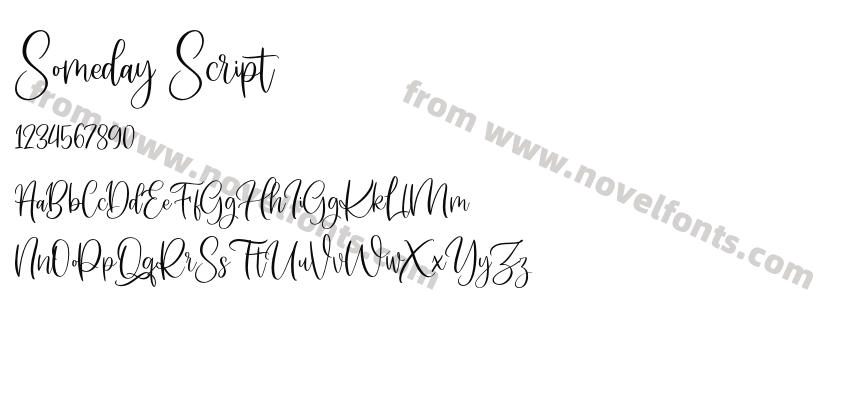 Someday Script
1234567890
AaBbCcDdEeFfGgHhIiGgKkLlMm
NnOoPpQqRrSsTtUuVvWwXxYyZz
from www.novelfonts.com
from www.novelfonts.com